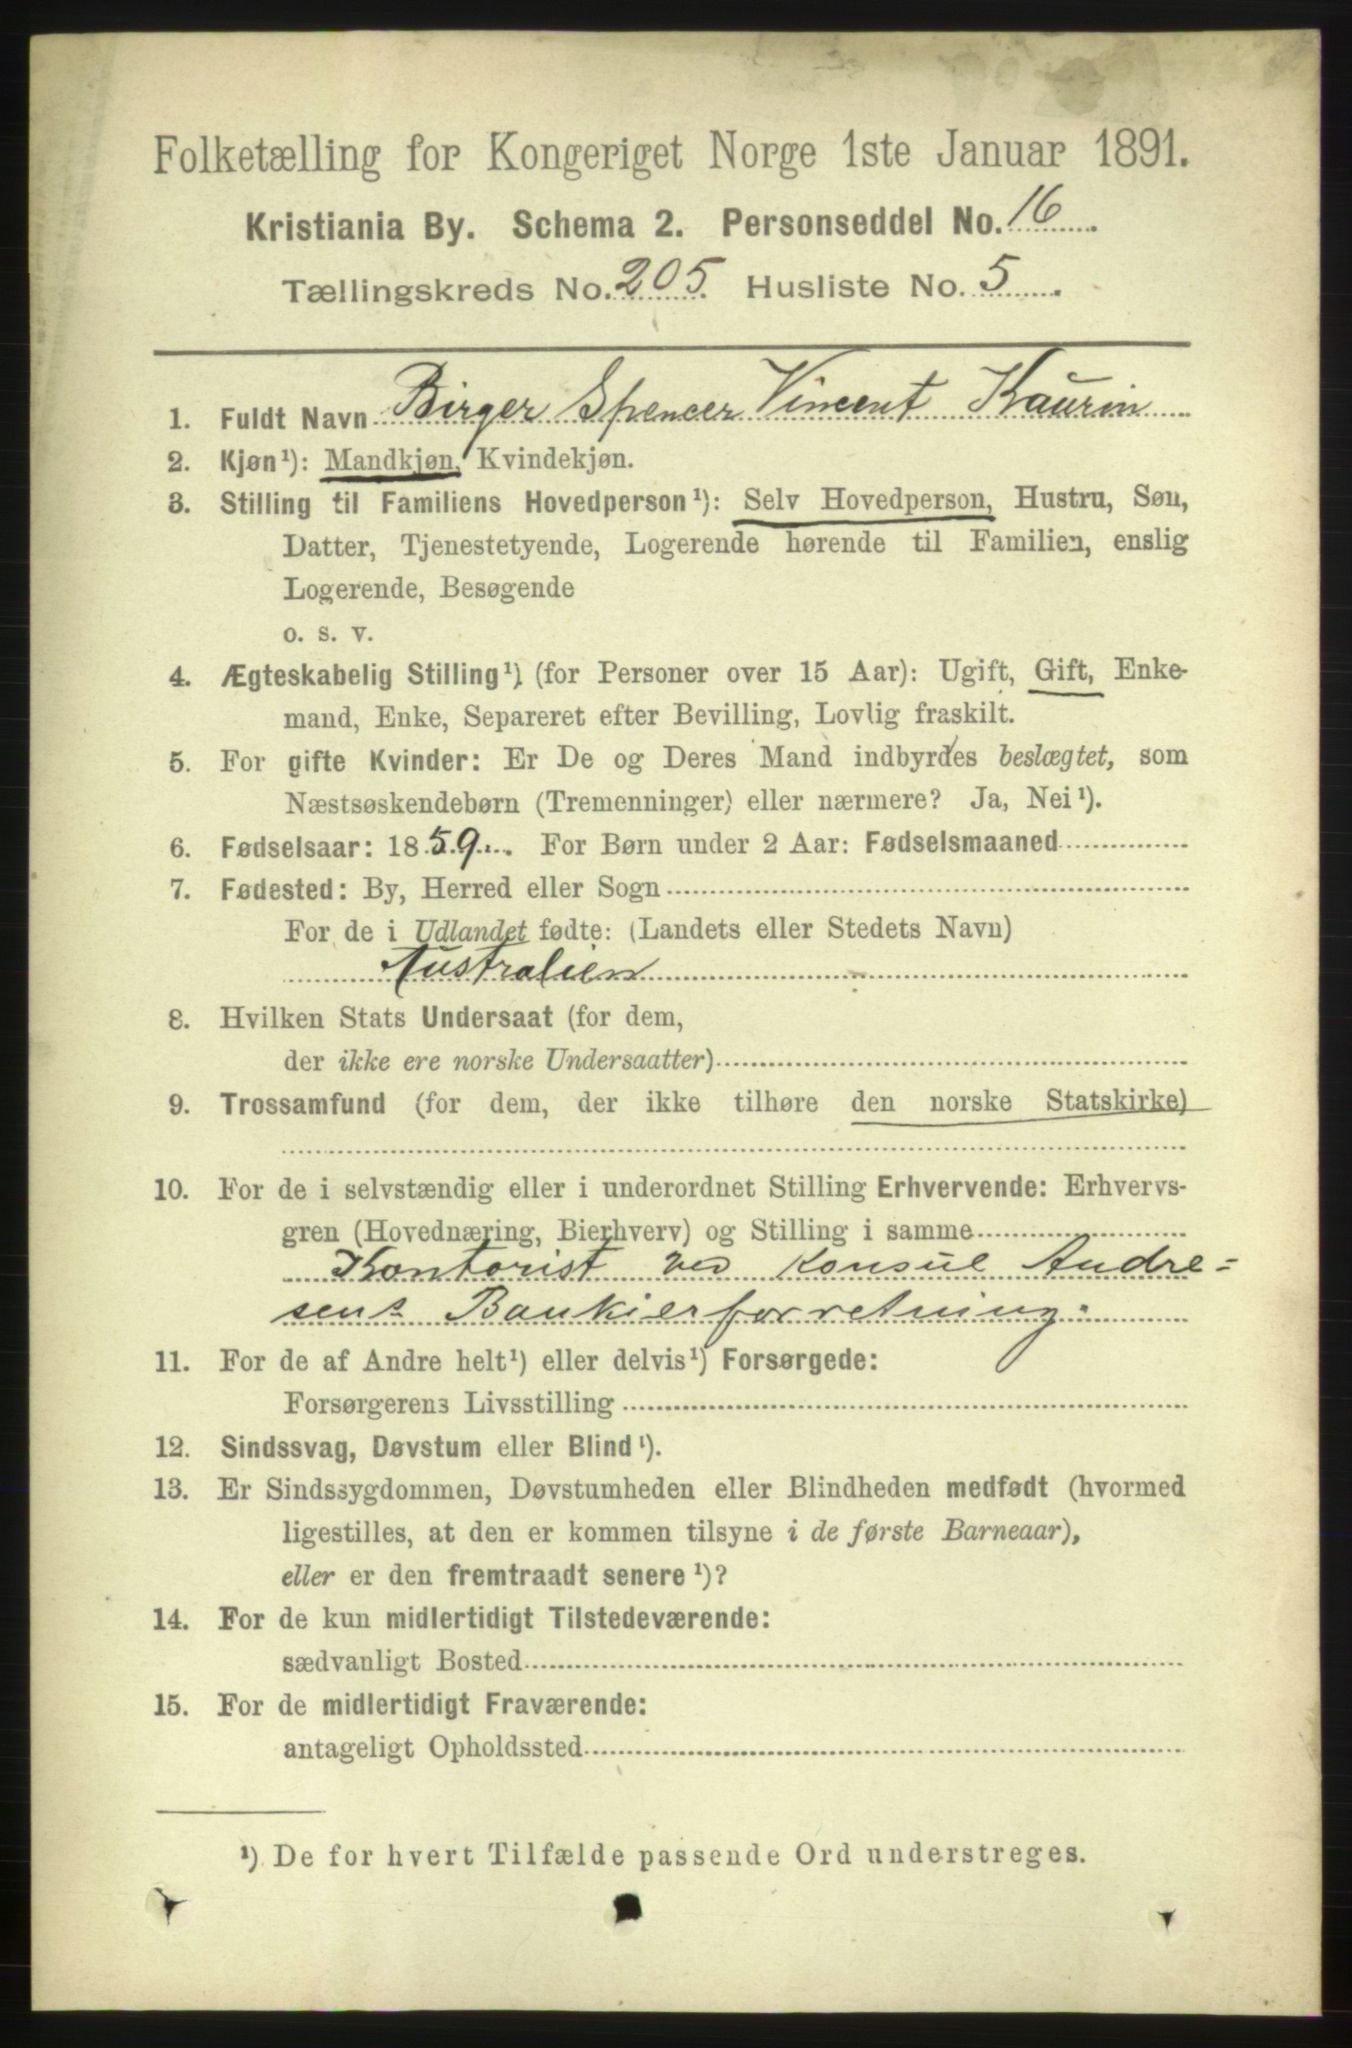 Folketælling for Kongeriget Norge 1ste Januar 1891.
Kristiania By. Schema 2. Personseddel No. 16
Tællingskreds No. 205. Husliste No. 5
1. Fuldt Navn Birger Spencer Vincent Kaurin
2. Kjøn¹): Mandkjøn, Kvindekjøn.
3. Stilling til Familiens Hovedperson¹): Selv Hovedperson, Hustru, Søn,
Datter, Tjenestetyende, Logerende hørende til Familien, enslig
Logerende, Besøgende
o. s. v.
4. Ægteskabelig Stilling¹) (for Personer over 15 Aar): Ugift, Gift, Enke-
mand, Enke, Separeret efter Bevilling, Lovlig fraskilt.
5. For gifte Kvinder: Er De og Deres Mand indbyrdes beslægtet, som
Næstsøskendebørn (Tremenninger) eller nærmere? Ja, Nei¹).
6. Fødselsaar: 1859. For Børn under 2 Aar: Fødselsmaaned
7. Fødested: By, Herred eller Sogn
For de i Udlandet fødte: (Landets eller Stedets Navn)
Australien
8. Hvilken Stats Undersaat (for dem,
der ikke ere norske Undersaatter)
9. Trossamfund (for dem, der ikke tilhøre den norske Statskirke)
10. For de i selvstændig eller i underordnet Stilling Erhvervende: Erhvervs-
gren (Hovednæring, Bierhverv) og Stilling i samme
Kontorist ved Konsul Andre=
sens Bankierforretning.
11. For de af Andre helt¹) eller delvis¹) Forsørgede:
Forsørgerens Livsstilling
12. Sindssvag, Døvstum eller Blind¹).
13. Er Sindssygdommen, Døvstumheden eller Blindheden medfødt (hvormed
ligestilles, at den er kommen tilsyne i de første Barneaar),
eller er den fremtraadt senere¹)?
14. For de kun midlertidigt Tilstedeværende:
sædvanligt Bosted
15. For de midlertidigt Fraværende:
antageligt Opholdssted
¹) De for hvert Tilfælde passende Ord understreges.